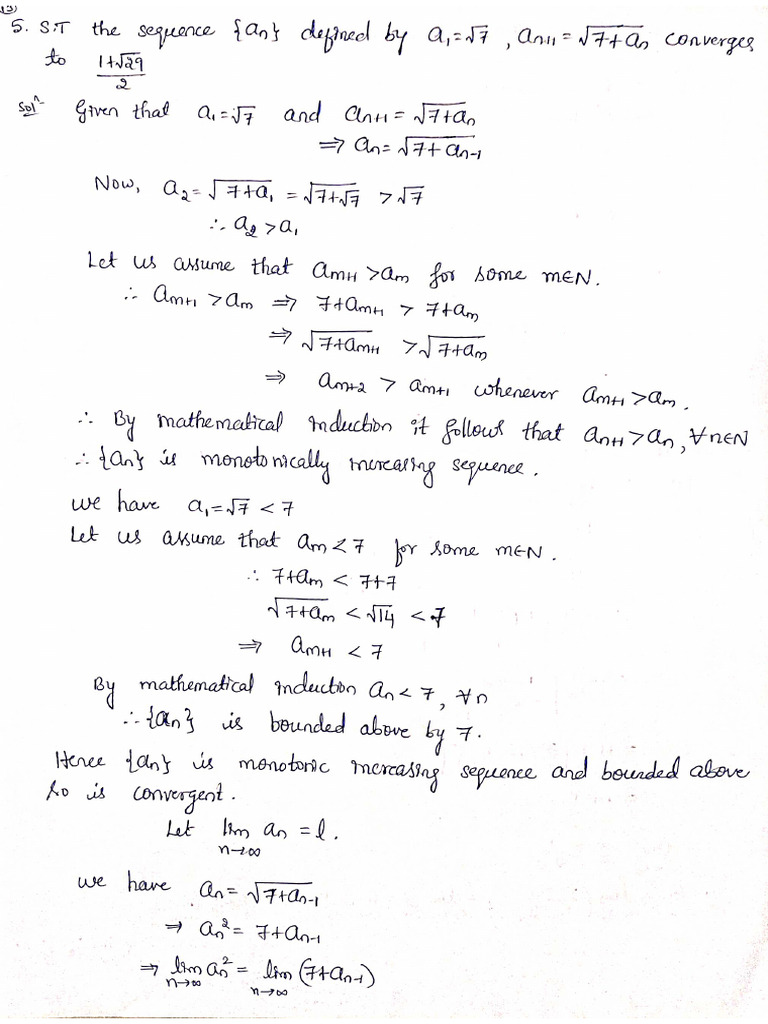 (3)
5. S.T the sequence {an} defined by a₁=√7, an+1=√(7+an) converges
to (1+√29)/2
Solⁿ Given that a₁=√7 and an+1=√(7+an)
⇒ an=√(7+an-1)
Now, a₂=√(7+a₁) =√(7+√7) >√7
∴ a₂>a₁
Let us assume that am+1>am for some m∈N.
∴ am+1>am ⇒ 7+am+1 > 7+am
⇒ √(7+am+1) >√(7+am)
⇒ am+2 > am+1 whenever am+1>am.
∴ By mathematical induction it follows that an+1>an, ∀n∈N
∴ {an} is monotonically increasing sequence.
we have a₁=√7 < 7
Let us assume that am<7 for some m∈N.
∴ 7+am < 7+7
√(7+am) <√14 <7
⇒ am+1 < 7
By mathematical induction an<7, ∀n
∴ {an} is bounded above by 7.
Hence {an} is monotonic increasing sequence and bounded above
so is convergent.
Let lim n→∞ an = l.
we have an=√(7+an-1)
⇒ an² = 7+an-1
⇒ lim n→∞ an² = lim n→∞ (7+an-1)